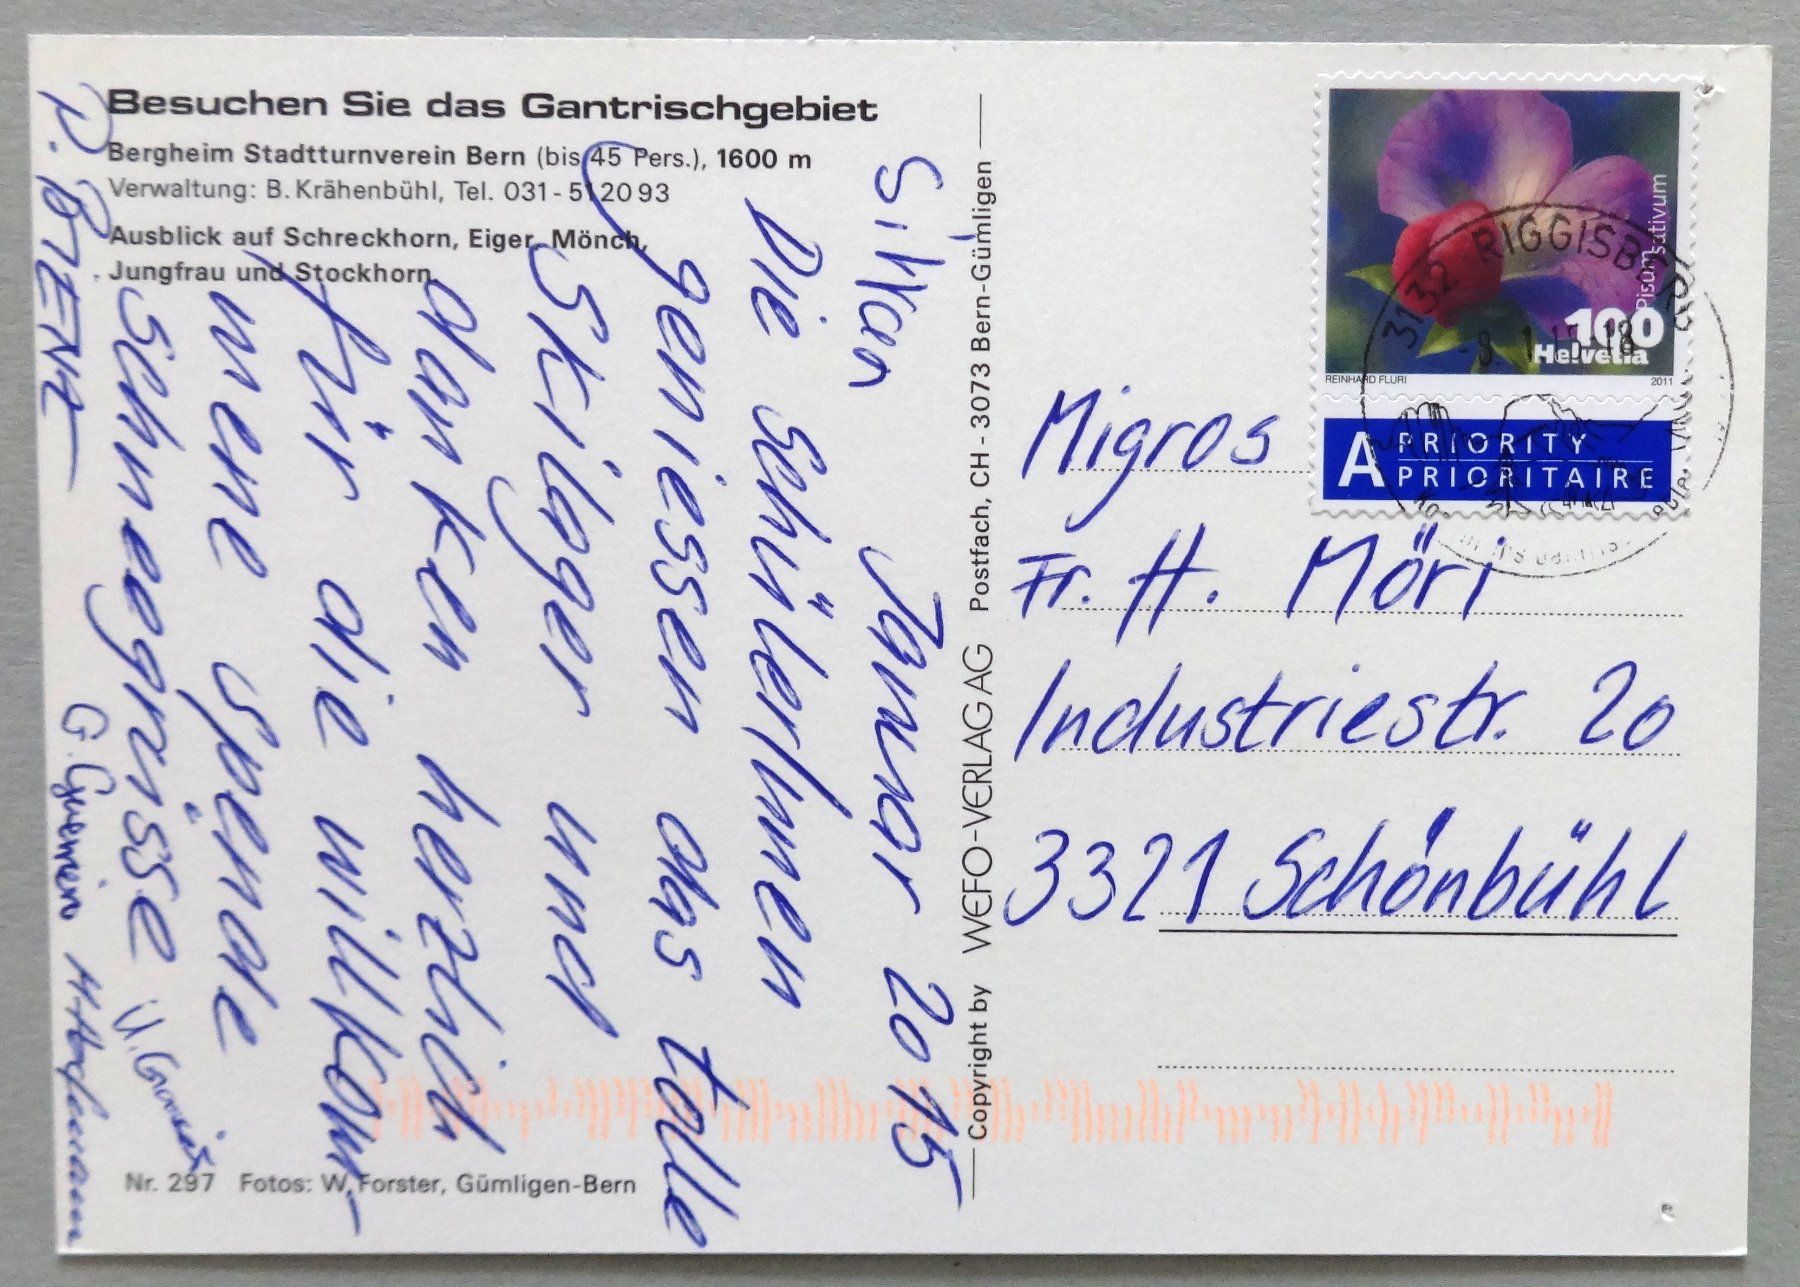 Besuchen Sie das Gantrischgebiet
Bergheim Stadtturnverein Bern (bis 45 Pers.), 1600 m
Verwaltung: B. Krähenbühl, Tel. 031-512093
Ausblick auf Schreckhorn, Eiger, Mönch,
Jungfrau und Stockhorn.
Januar 2015
Die SchülerInnen
geniessen das tolle
Skilager und
danken herzlich
für die willkom-
mene Spende
Schneegrüsse
Nr. 297 Fotos: W. Forster, Gümligen-Bern
Copyright by WEFO-VERLAG AG Postfach, CH - 3073 Bern-Gümligen
Pisum sativum
100
Helvetia
REINHARD FLURI 2011
A PRIORITY
PRIORITAIRE
3132 RIGGISBERG
Migros
Fr. H. Möri
Industriestr. 20
3321 Schönbühl